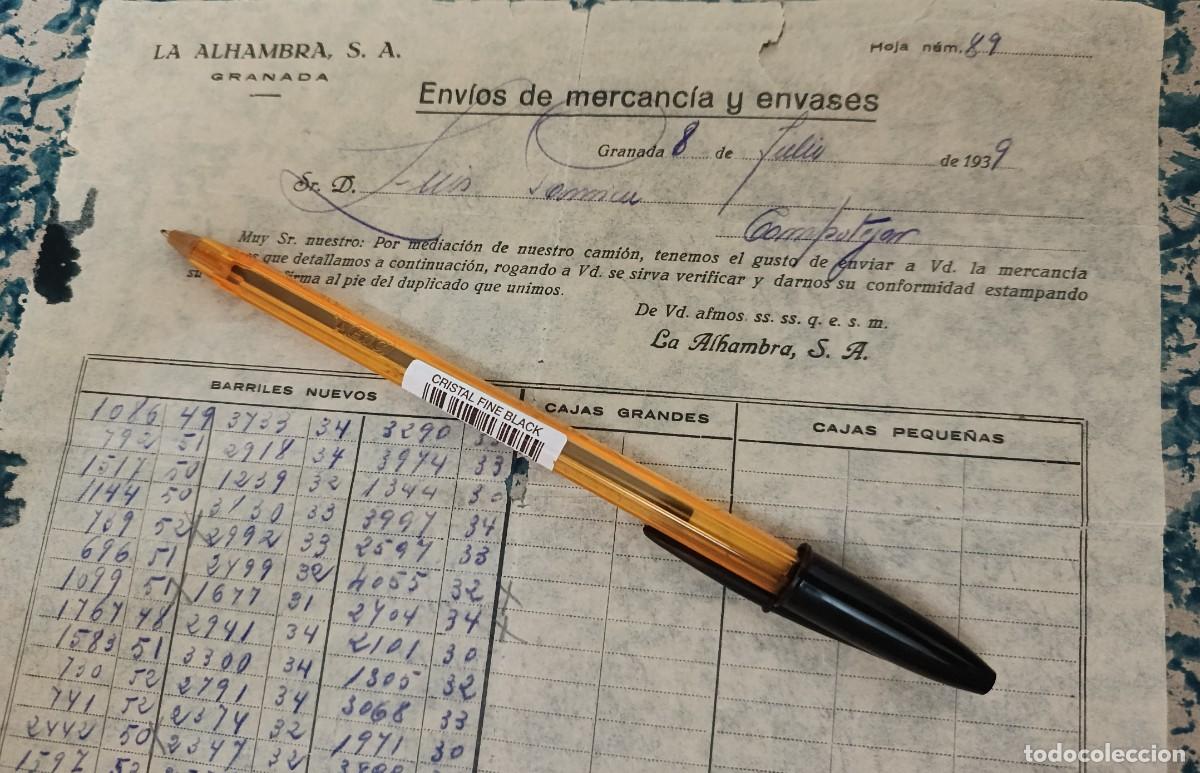 LA ALHAMBRA, S. A.
GRANADA
Hoja núm. 89
Envíos de mercancía y envases
Granada 8 de Julio de 1939
Sr. D. Luis
Campotejar
Muy Sr. nuestro: Por mediación de nuestro camión, tenemos el gusto de enviar a Vd. la mercancía
que detallamos a continuación, rogando a Vd. se sirva verificar y darnos su conformidad estampando
su firma al pie del duplicado que unimos.
De Vd. afmos. ss. ss. q. e. s. m.
La Alhambra, S. A.
CRISTAL FINE BLACK
BARRILES NUEVOS CAJAS GRANDES CAJAS PEQUEÑAS
1086 49 3733 34 3290
792 51 2918 34 3974 33
1517 50 1239 32 1344 30
1144 50 3130 33 3997 34
709 52 2992 33 2597 33
696 51 2499 32 4055 32
1099 51 1677 31 2404 34
1767 48 2941 34 2101 30
1583 51 3300 34 1805 32
750 52 2791 34 3068 33
741 52 2374 32 1971 30
2442 50 2347 32
1597 52
todocoleccion